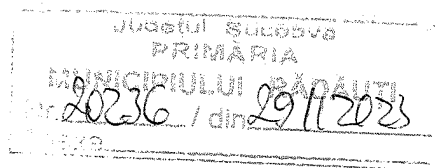 Județul Suceava
PRIMĂRIA
MUNICIPIULUI RĂDĂUȚI
Nr. 20236 / din 29 11 2023